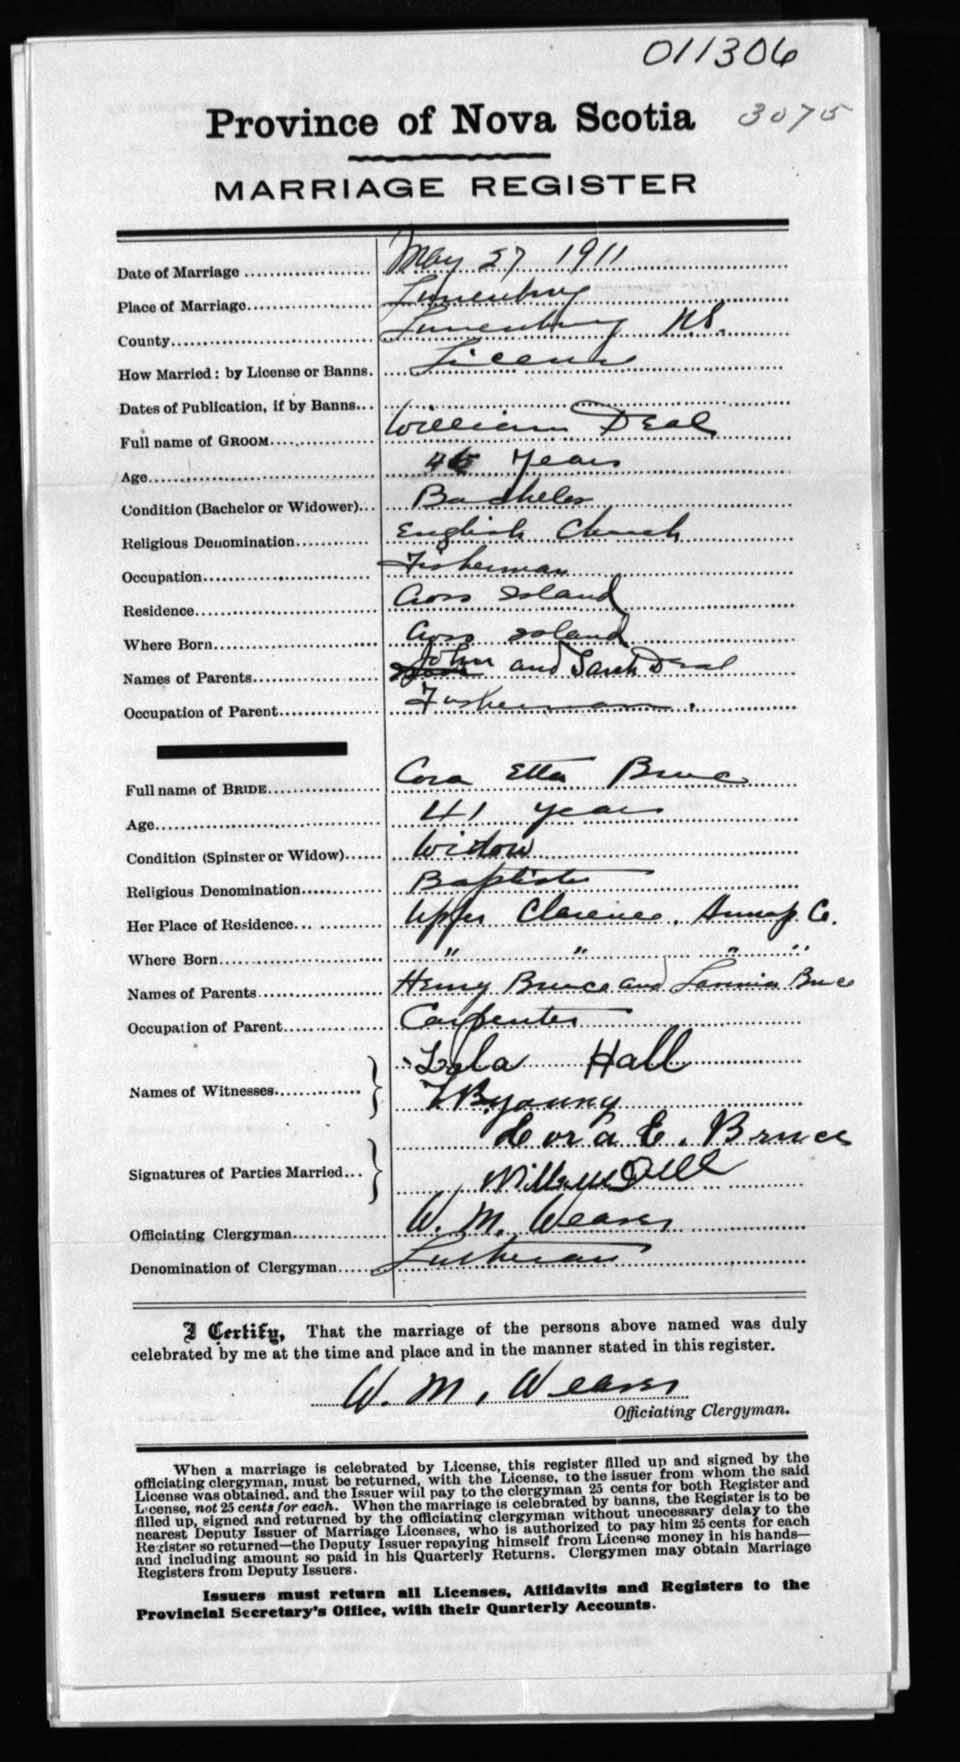 011306
Province of Nova Scotia 3075
MARRIAGE REGISTER
Date of Marriage May 27 1911
Place of Marriage Lunenburg
County Lunenburg N.S.
How Married: by License or Banns. License
Dates of Publication, if by Banns
Full name of GROOM William Deal
Age years
Condition (Bachelor or Widower) Bachelor
Religious Denomination English Church
Occupation Fisherman
Residence Cross Island
Where Born Cross Island
Names of Parents John and Sarah Deal
Occupation of Parent Fisherman.
Full name of BRIDE Cora Etta Bruce
Age 41 years
Condition (Spinster or Widow) Widow
Religious Denomination Baptist
Her Place of Residence Upper Clarence, Annap. Co.
Where Born " " " "
Names of Parents Henry Bruce and Bruce
Occupation of Parent Carpenter
Lela Hall
Names of Witnesses
Young
Cora E. Bruce
Signatures of Parties Married
William Dell
Officiating Clergyman W. M. Weaver
Denomination of Clergyman Lutheran
I Certify, That the marriage of the persons above named was duly
celebrated by me at the time and place and in the manner stated in this register.
W. M. Weaver
Officiating Clergyman.
When a marriage is celebrated by License, this register filled up and signed by the
officiating clergyman, must be returned, with the License, to the issuer from whom the said
License was obtained, and the Issuer will pay to the clergyman 25 cents for both Register and
License, not 25 cents for each. When the marriage is celebrated by banns, the Register is to be
filled up, signed and returned by the officiating clergyman without unnecessary delay to the
nearest Deputy Issuer of Marriage Licenses, who is authorized to pay him 25 cents for each
Register so returned—the Deputy Issuer repaying himself from License money in his hands—
and including amount so paid in his Quarterly Returns. Clergymen may obtain Marriage
Registers from Deputy Issuers.
Issuers must return all Licenses, Affidavits and Registers to the
Provincial Secretary's Office, with their Quarterly Accounts.